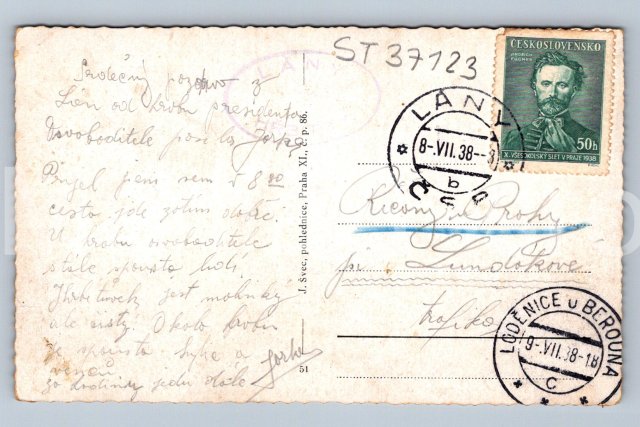 ST 37123
ČESKOSLOVENSKO
JINDŘICH FÜGNER
50h
X. VŠESOKOLSKÝ SLET V PRAZE 1938
LÁNY
8-VII.38--
b
Srdečný pozdrav z
Lán od hrobu presidenta
Osvoboditele posílá Jarka
Přijel jsem sem v 8
cesta jde zatím dobře.
U hrobu osvoboditele
stále spousta lidí.
Hrbitůvek jest malinký
ale čistý. Okolo hrobu
je spousta kytic a
věnců
za hodinu jedu dále
Jarka
J. Švec, pohlednice, Praha XI., č. p. 86.
51
Říčany u Prahy
trafika
LODĚNICE U BEROUNA
9-VII.38-18
c